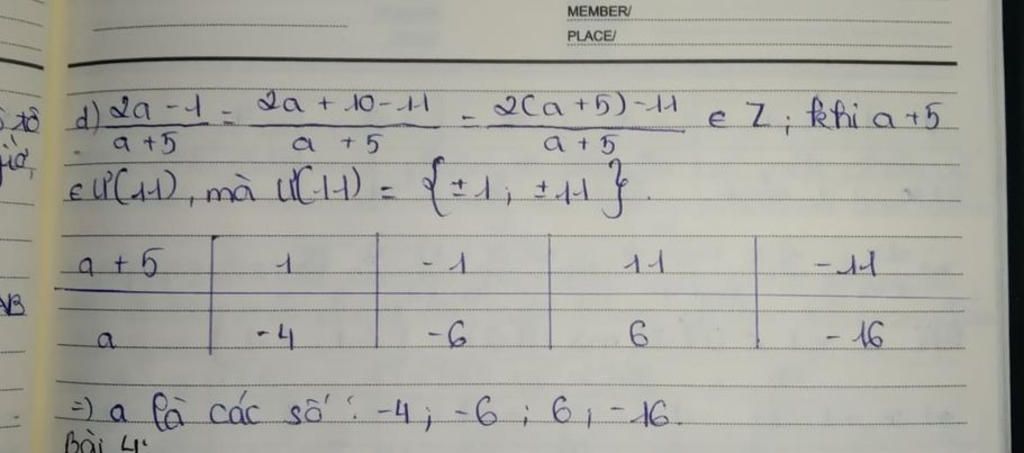 MEMBER/
PLACE/
tô
d) 2a - 1 / a + 5 = 2a + 10 - 11 / a + 5 = 2(a + 5) - 11 / a + 5 ∈ Z ; khi a + 5
giờ,
∈ Ư(11), mà Ư(11) = {±1 ; ±11}.
a + 5 1 - 1 11 - 11
AB
a - 4 - 6 6 - 16
=) a là các số : -4 ; -6 ; 6 ; -16.
Bài 4: